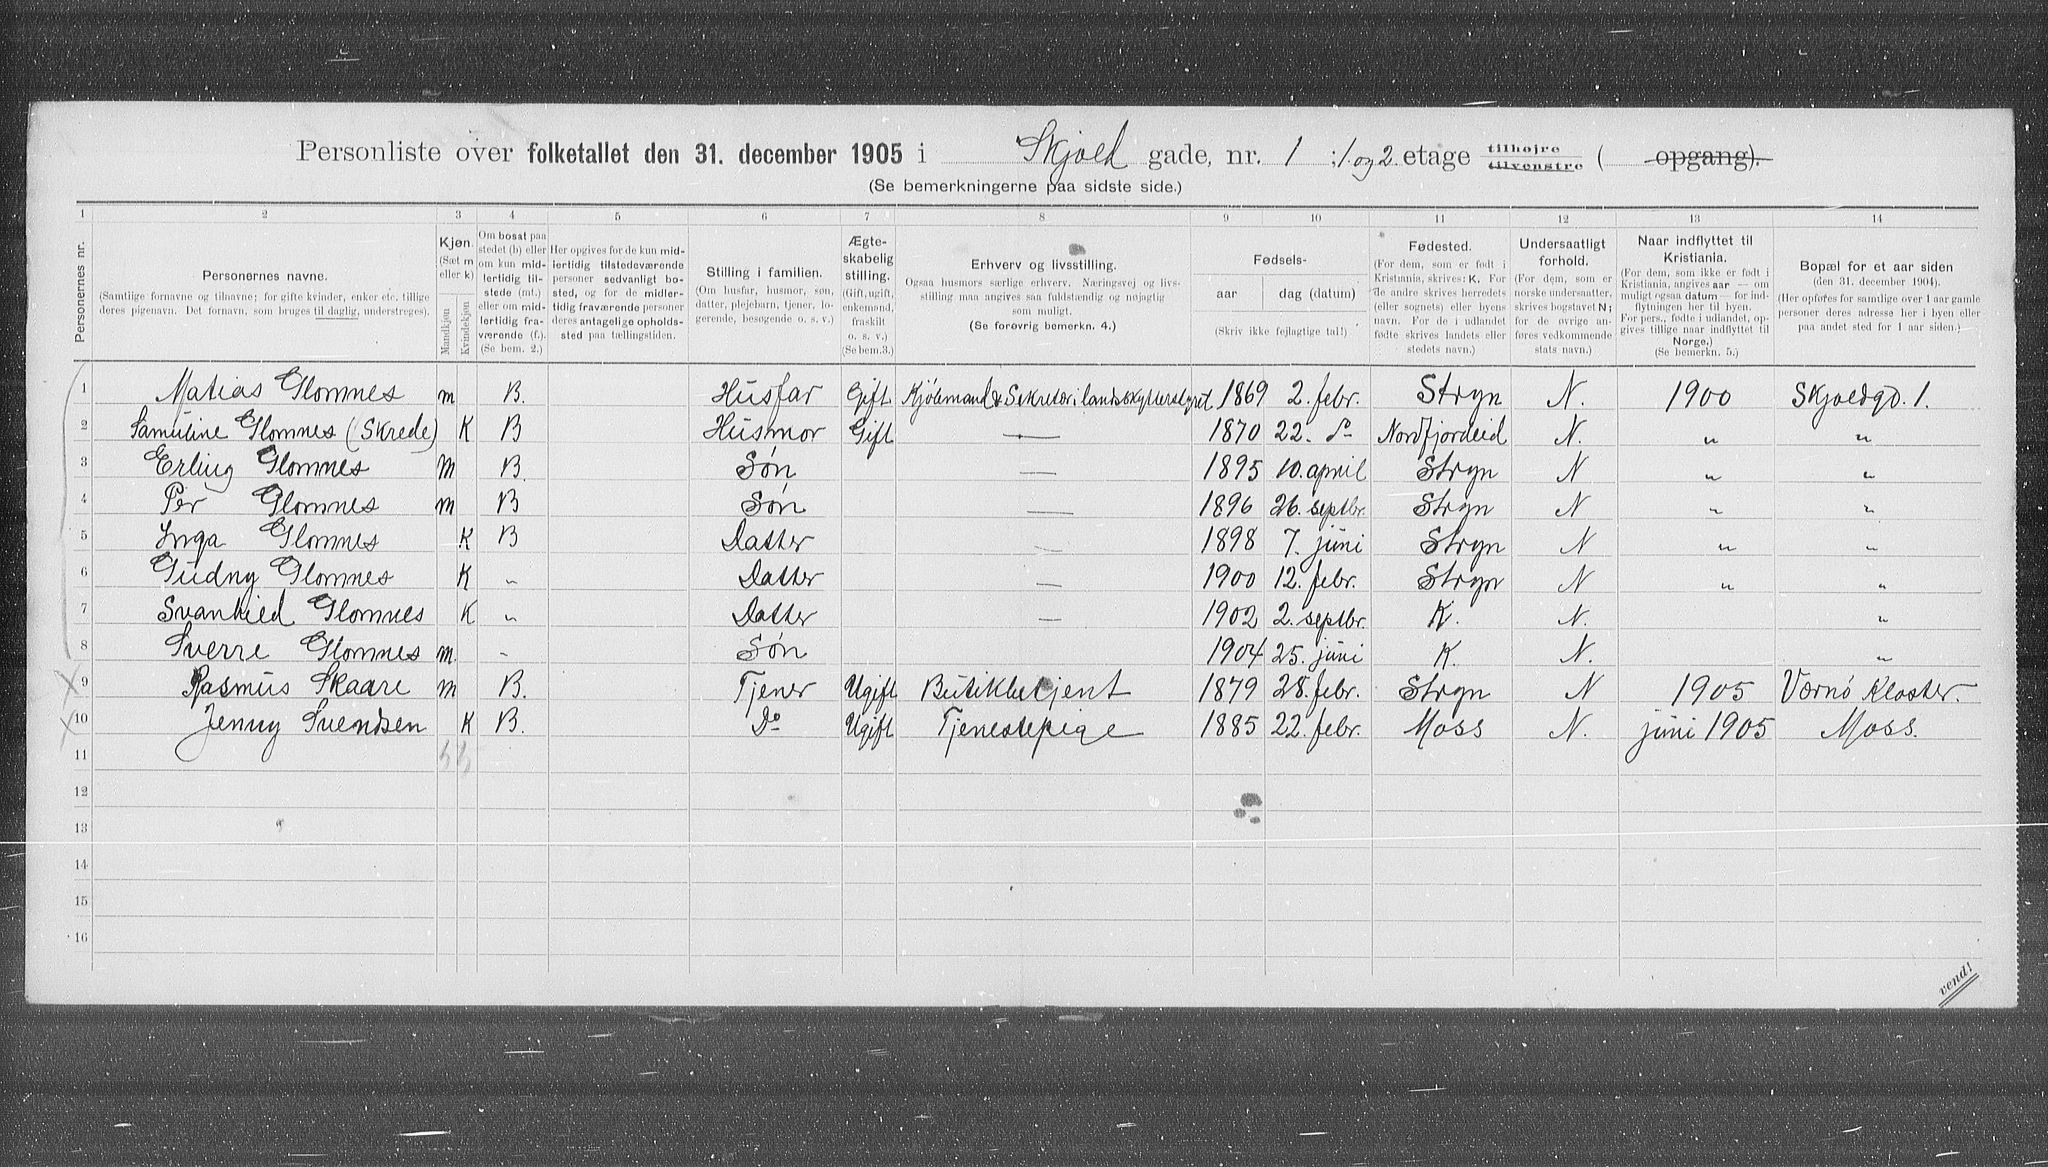 Personliste over folketallet den 31. december 1905 i Skjold gade, nr. 1 ; 1. og 2 etage tilhøjre tilvenstre ( opgang).
(Se bemerkningerne paa sidste side.)
1 2 3 4 5 6 7 8 9 10 11 12 13 14
Personernes nr.
Personernes navne.
(Samtlige fornavne og tilnavne; for gifte kvinder, enker etc. tillige
deres pigenavn. Det fornavn, som bruges til daglig, understreges).
Kjøn.
(Sæt m
eller k)
Mandkjøn
Kvindekjøn
Om bosat paa
stedet (b) eller
om kun mid-
lertidig til-
stede (mt.)
eller om mid-
lertidig fra-
værende (f.).
(Se bem. 2.)
Her opgives for de kun mid-
lertidig tilstedeværende
personer sedvanligt bo-
sted, og for de midler-
tidig fraværende personer
deres antagelige opholds-
sted paa tællingstiden.
Stilling i familien.
(Om husfar, husmor, søn,
datter, plejebarn, tjener, lo-
gerende, besøgende o. s. v.)
Ægte-
skabelig
stilling.
(Gift, ugift,
enkemand,
fraskilt
o. s. v.)
(Se bem.3.)
Erhverv og livsstilling.
Ogsaa husmors særlige erhverv. Næringsvej og livs-
stilling maa angives saa fuldstændig og nøjagtig
som muligt.
(Se forøvrig bemerkn. 4.)
Fødsels-
aar
dag (datum)
(Skriv ikke fejlagtige tal!)
Fødested.
(For dem, som er født i
Kristiania, skrives: K. For
de andre skrives herredets
(eller sognets) eller byens
navn. For de i udlandet
fødte skrives landets eller
stedets navn.)
Undersaatligt
forhold.
(For dem, som er
norske undersaatter,
skrives bogstavet N;
for de øvrige an-
føres vedkommende
stats navn.)
Naar indflyttet til
Kristiania.
(For dem, som ikke er født i
Kristiania, angives aar — om
muligt ogsaa datum — for ind-
flytningen her til byen.
For pers., fødte i udlandet, op-
gives tillige naar indflyttet til
Norge.)
(Se bemerkn. 5.)
Bopæl for et aar siden
(den 31. december 1904).
(Her opføres for samtlige over 1 aar gamle
personer deres adresse her i byen eller
paa andet sted for 1 aar siden.)
1 Matias Glomnes m B. Husfar Gift Kjøbmand & Sekretær i landsskytterstyret 1869 2. febr. Stryn N. 1900 Skjoldgd. 1.
2 Samuline Glomnes (Skrede) K B Husmor Gift — 1870 22. do Nordfjordeid N. " "
3 Erling Glomnes m B. Søn — 1895 10. april Stryn N " "
4 Per Glomnes m B Søn — 1896 26. septbr. Stryn N " "
5 Inga Glomnes K B Datter — 1898 7. juni Stryn N " "
6 Gudny Glomnes K " Datter — 1900 12. febr. Stryn N " "
7 Svanhild Glomnes K " Datter — 1902 2. septbr. K. N. "
8 Sverre Glomnes m. " Søn 1904 25. juni K. N. "
9 Rasmus Skaare m B. Tjener Ugift Butikbetjent 1879 28. febr. Stryn N 1905 Værnø Kloster.
10 Jenny Svendsen K B. Do Ugift Tjenestepige 1885 22. febr. Moss N. juni 1905 Moss.
11
12
13
14
15
16
vend!